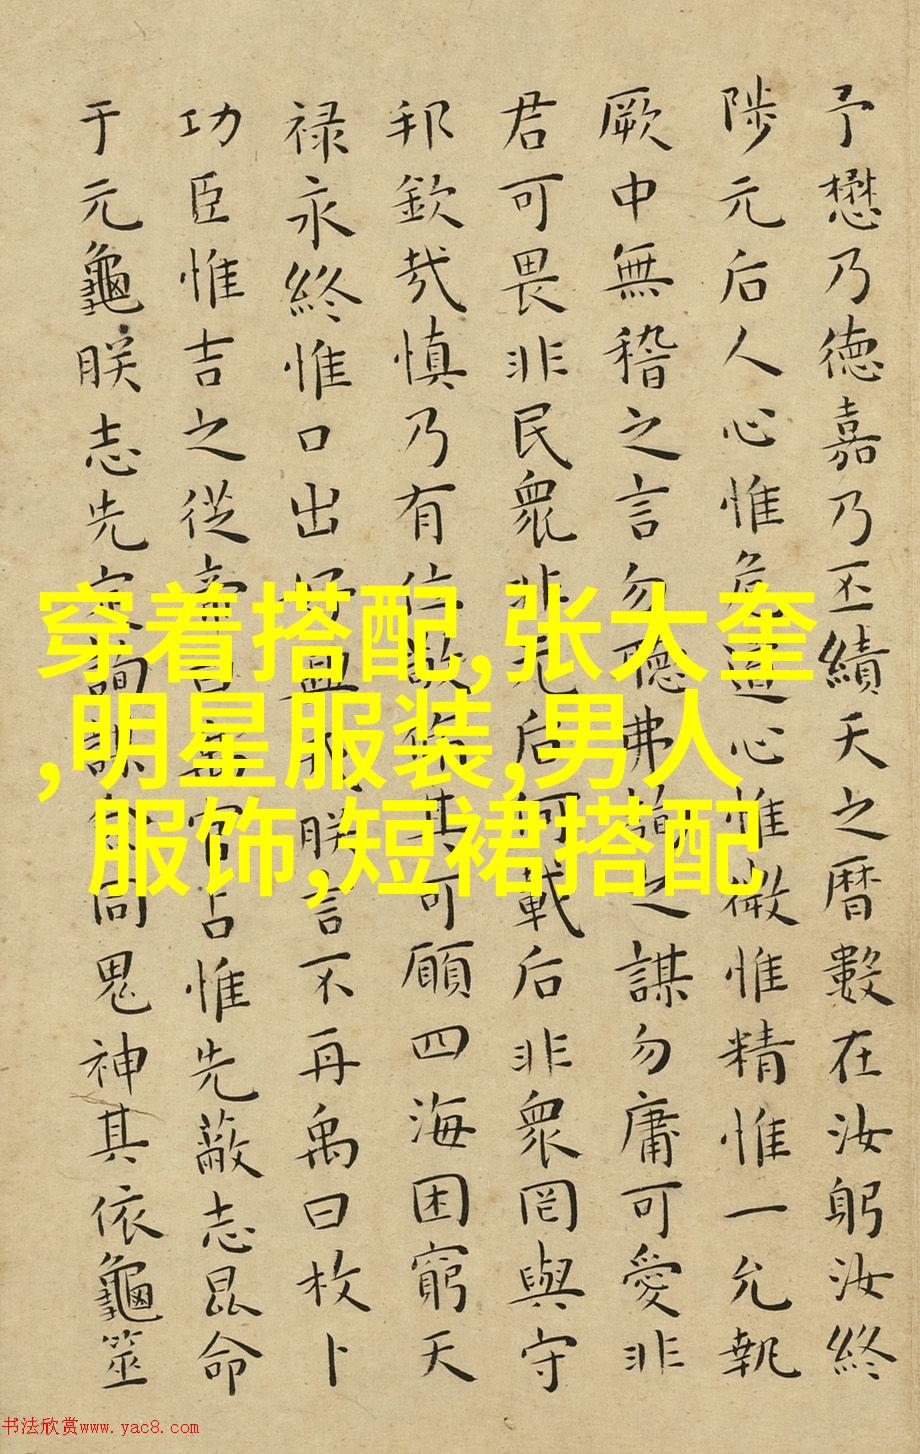 予懋乃德嘉乃丕績天之曆數在汝躬汝終
陟元后人心惟危道心惟微惟精惟一允執
厥中無稽之言勿聽弗詢之謀勿庸可愛非
君可畏非民衆非元后何載后非衆罔與守
邦欽哉慎乃有位敬脩其可願四海困窮天
禄永終惟口出好朕言不再禹曰枚卜
功臣惟吉之從帝曰禹官占惟先蔽志昆命
于元龜朕志先定詢謀僉同鬼神其依龜筮
穿着搭配,张大奎
,明星服装,男人
服饰,短裙搭配
书法欣赏www.yac8.com